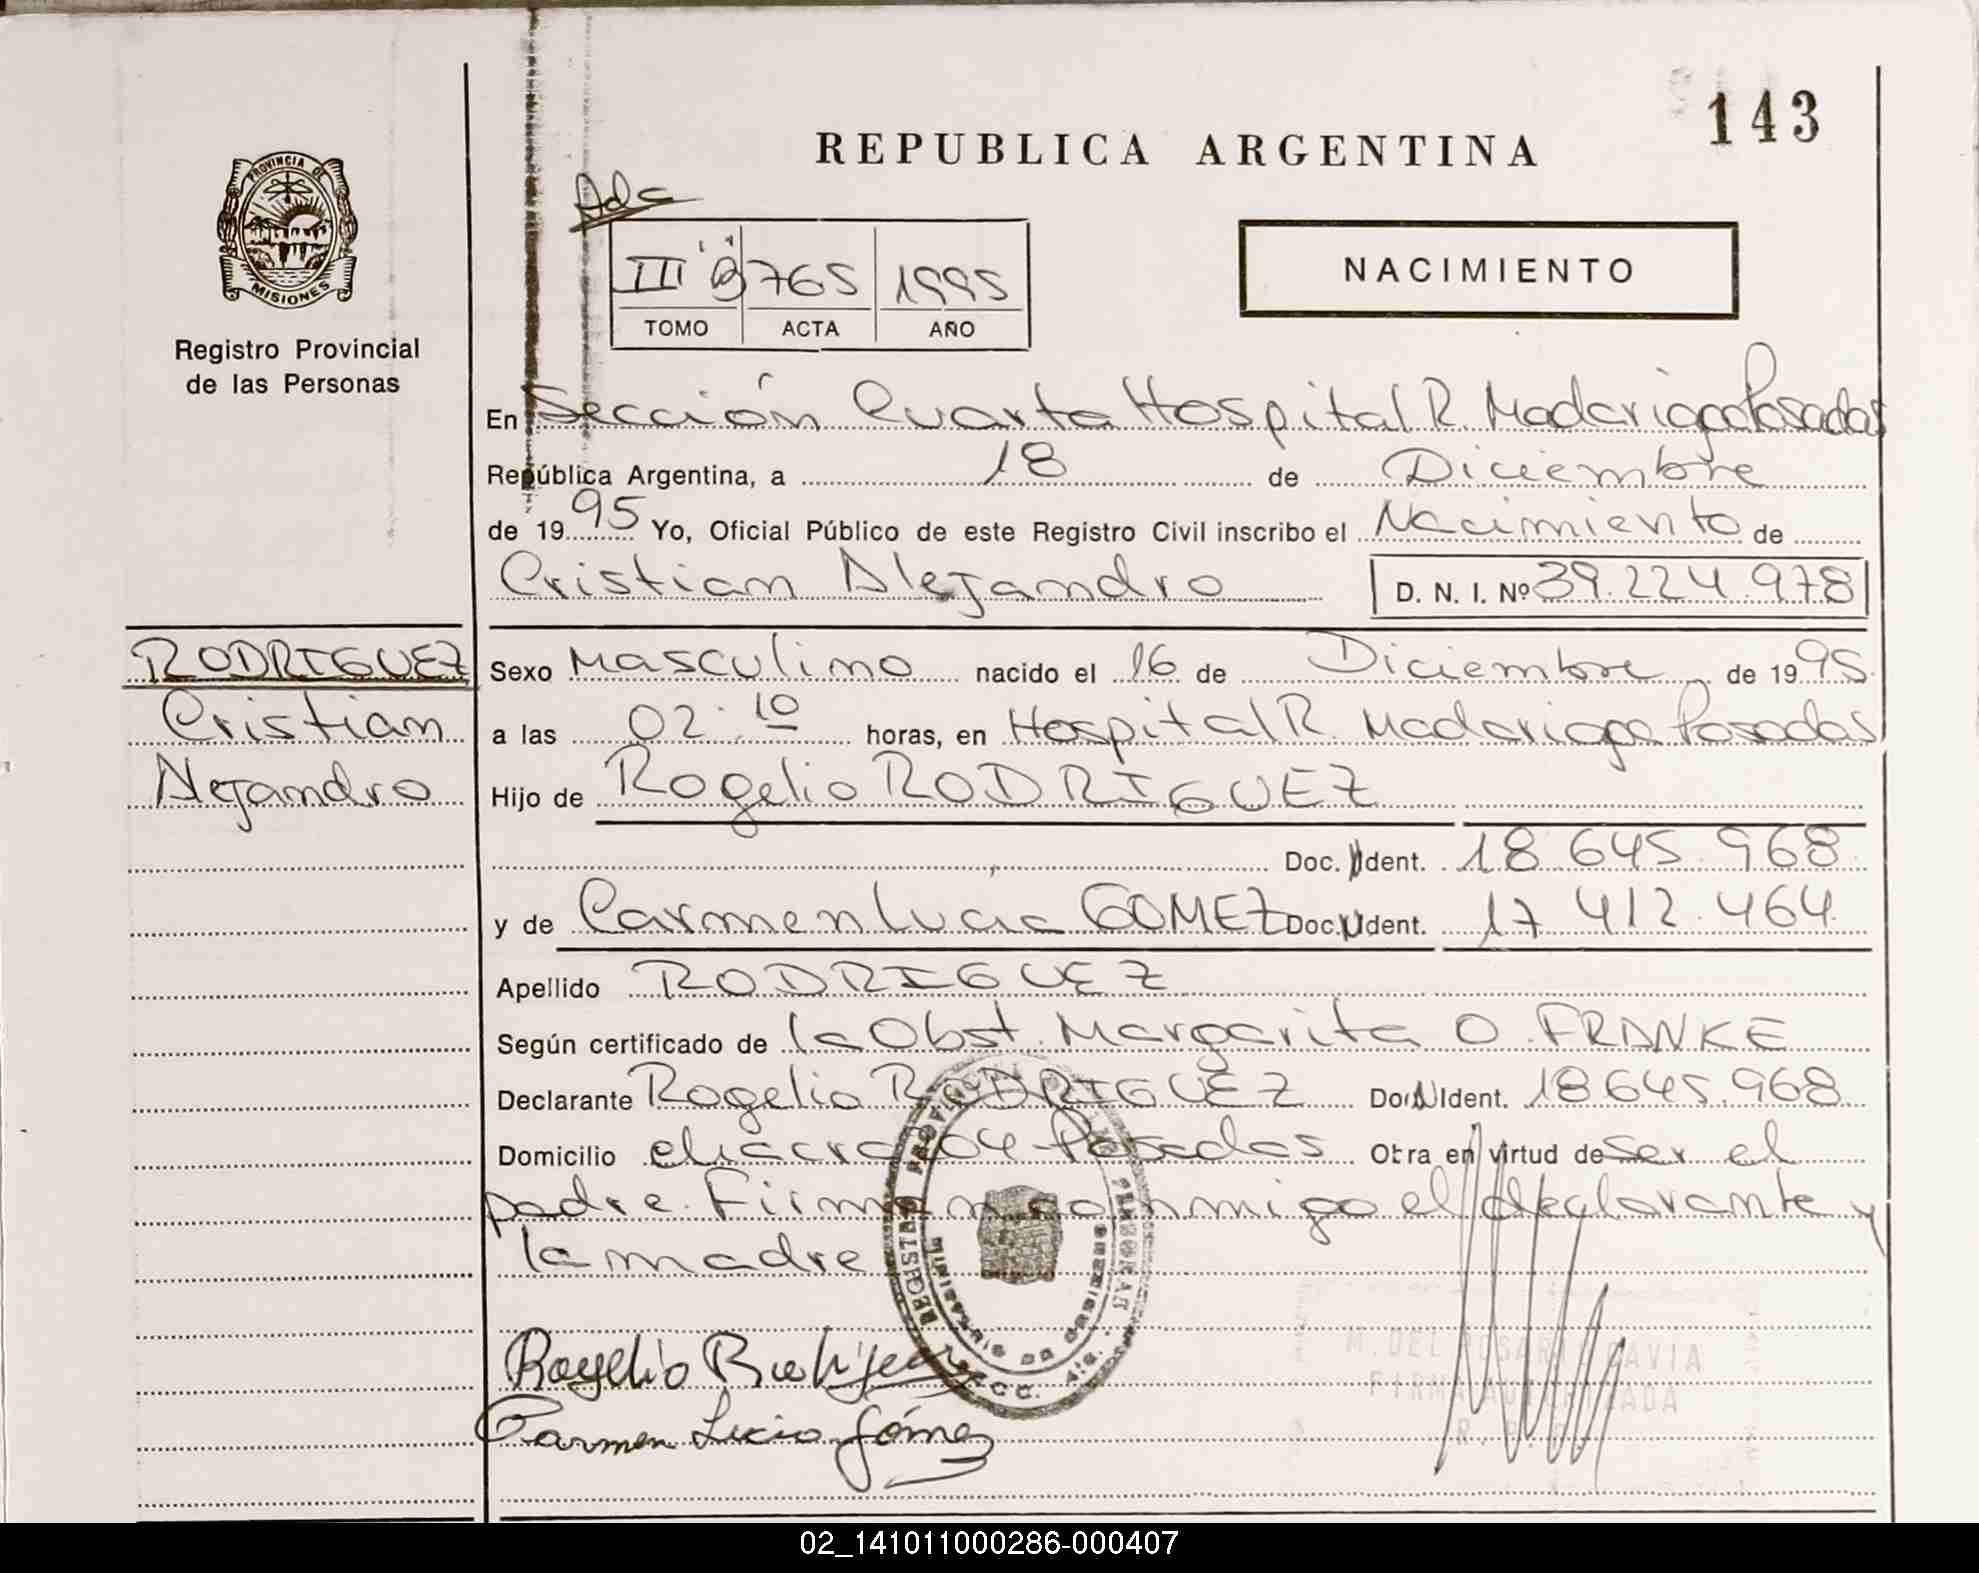 143
REPUBLICA ARGENTINA
PROVINCIA DE
MISIONES
Registro Provincial
de las Personas
Adc
III 765 1995
TOMO ACTA AÑO
NACIMIENTO
En Sección Cuarta Hospital R. Madariaga Posadas
República Argentina, a 18 de Diciembre
de 1995 Yo, Oficial Público de este Registro Civil inscribo el Nacimiento de
Cristian Alejandro D. N. I. Nº 39.224.978
RODRIGUEZ
Cristian
Alejandro
Sexo Masculino nacido el 16 de Diciembre de 1995
a las 02:10 horas, en Hospital R. Madariaga Posadas
Hijo de Rogelio RODRIGUEZ
Doc. Ident. 18 645.968
y de Carmen Lucia GOMEZ Doc. Ident. 17 412.464
Apellido RODRIGUEZ
Según certificado de la Obst. Margarita O. FRANKE
Declarante Rogelio RODRIGUEZ Doc. Ident. 18645.968
Domicilio chacra 204 Posadas Otra en virtud de ser el
padre. Firman conmigo el declarante y
la madre
REGISTRO PROVINCIAL DE LAS PERSONAS
MINISTERIO DE GOBIERNO
Rogelio Rodriguez
Carmen Lucia Gómez
M. DEL ROSARIO
FIRMA AUTORIZADA
02_141011000286-000407